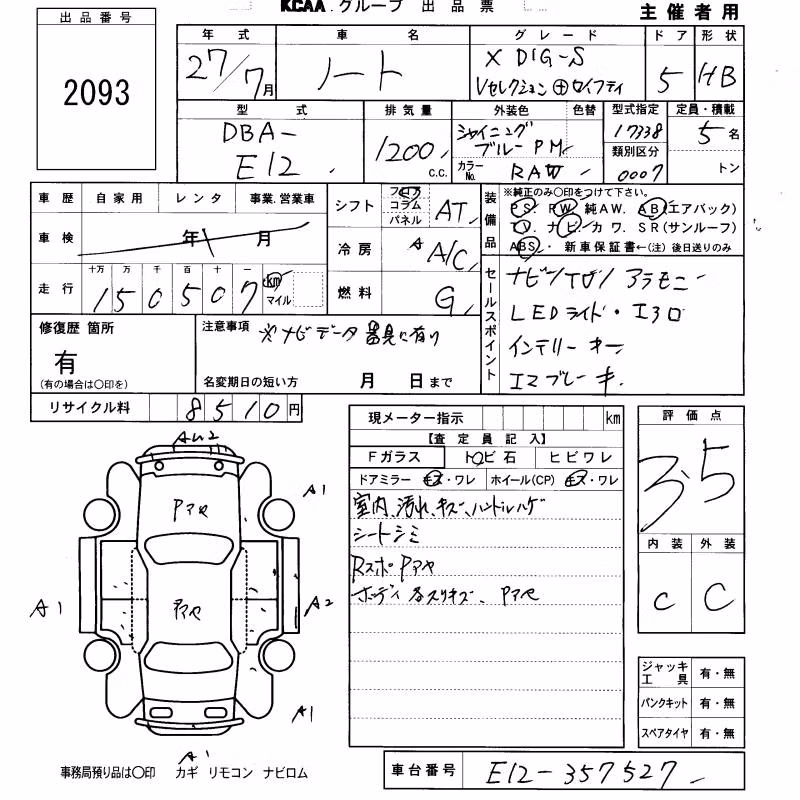 KCAA.グループ 出品票
主催者用
出品番号
2093
年式 車名 グレード ドア 形状
27/7月 ノート X DIG-S
Vセレクション⊕セイフティ 5 HB
型式 排気量 外装色 色替 型式指定 定員・積載
DBA-
E12 1200 c.c. シャイニング
ブルーPM 17338 5名
類別区分
カラーNo. RAW 0007 トン
車歴 自家用 レンタ 事業.営業車
シフト フロア コラム パネル AT
装備品 ※純正のみ〇印をつけて下さい。
PS. PW. 純AW. AB(エアバック)
TV. ナビ. カワ. SR(サンルーフ)
ABS. ・ 新車保証書←(注) 後日送りのみ
車検 年 月
冷房 A A/C
走行 十万 万 千 百 十 一
150507 km マイル
燃料 G
セールスポイント
ナビ/TV/アラモニー
LEDライト・エアロ
インテリキー
エマブレーキ
修復歴 箇所
有
(有の場合は〇印を)
注意事項 ※ナビデータ 有り
名変期日の短い方 月 日まで
リサイクル料 8510円
現メーター指示 km
【査定員記入】
Fガラス トビ石 ヒビワレ
ドアミラー キズ・ワレ ホイール(CP) キズ・ワレ
室内、汚れ、キズ、ハンドルハゲ
シートシミ
Rスポ Pアヤ
ボディ 各スリキズ、Pアセ
評価点
3.5
内装 外装
C C
AU2
Pアセ
A1
Pアセ
A1
A2
A1
A1
ジャッキ
工具 有・無
パンクキット 有・無
スペアタイヤ 有・無
事務局預り品は〇印 カギ リモコン ナビロム
車台番号 E12-357527